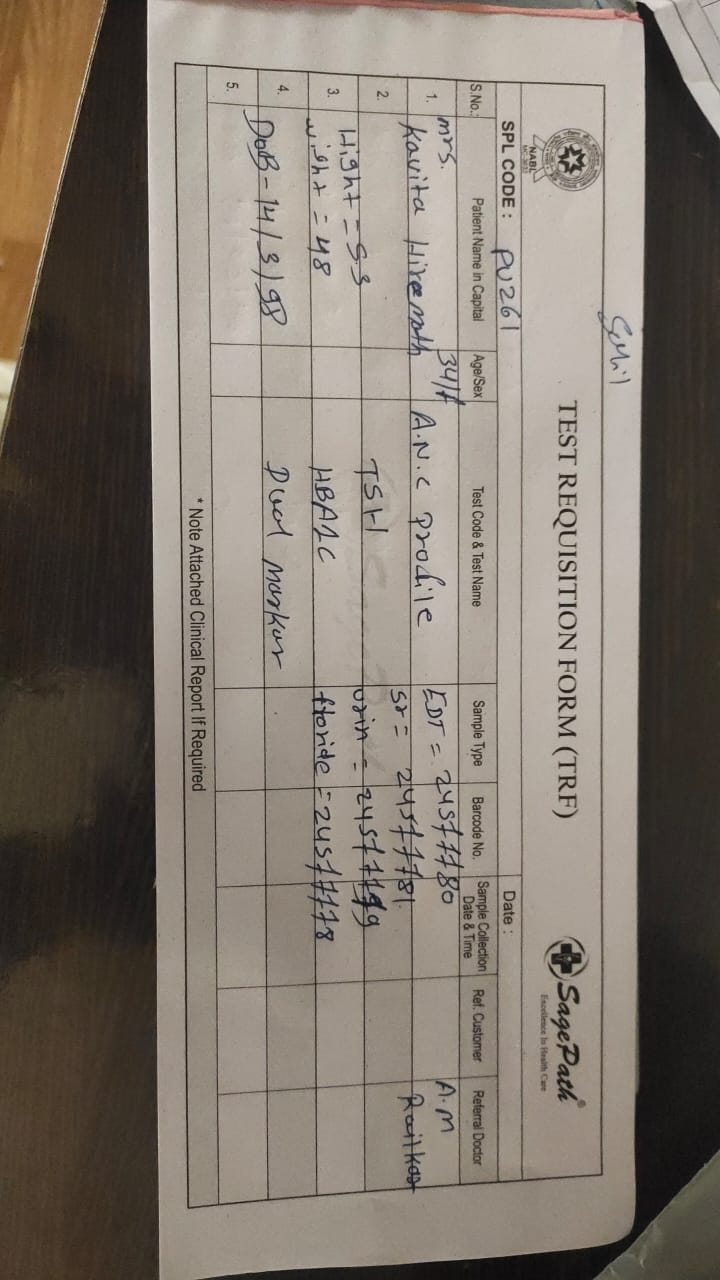 Sahil
TEST REQUISITION FORM (TRF)
SagePath®
Excellence In Health Care
NABL
SPL CODE : PU261
Date :
S.No.: Patient Name in Capital Age/Sex Test Code & Test Name Sample Type Barcode No. Sample Collection Date & Time Ref. Customer Referral Doctor
1. mrs. Kavita Hiremath 34/f A.N.C profile EDT = 24577780 A.M Railkar
2. TSH Sr = 24577781
Hight = 5.3 urin = 24577779
3. wight = 48 HBA1C floride = 24577778
4. DoB - 14/3/98 Dual markar
5.
* Note Attached Clinical Report If Required